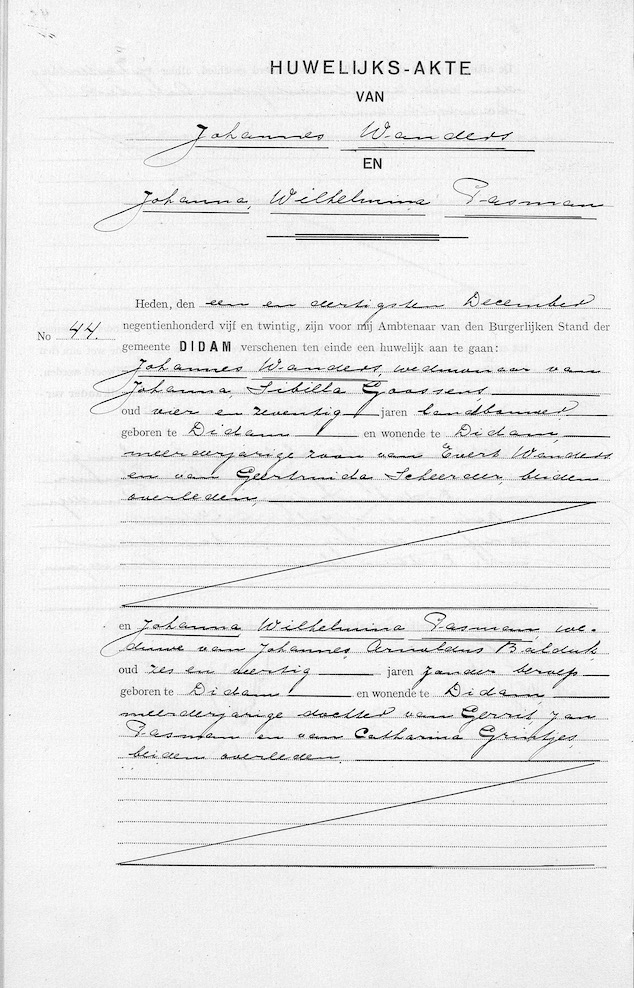 HUWELIJKS-AKTE
VAN
Johannes Wanders
EN
Johanna, Wilhelmina Pasman
Heden, den een en dertigsten December
negentienhonderd vijf en twintig, zijn voor mij Ambtenaar van den Burgerlijken Stand der
No 44.
gemeente DIDAM verschenen ten einde een huwelijk aan te gaan:
Johannes Wanders, weduwnaar van
Johanna, Sibilla Goossens,
oud vier en zeventig jaren landbouwer
geboren te Didam en wonende te Didam,
meerderjarige zoon van Evert Wanders
en van Geertruida Scheerder, beiden
overleden,
en Johanna Wilhelmina Pasman, we-
duwe van Johannes Arnoldus
oud zes en veertig jaren zonder beroep
geboren te Didam en wonende te Didam
meerderjarige dochter van Gerrit, Jan
Pasman en van Catharina
beiden overleden.